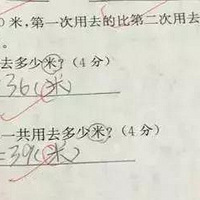 0米,第一次用去的比第二次用去
。
去多少米?(4分)
=36(米)
一共用去多少米?(4分)
=39(米)